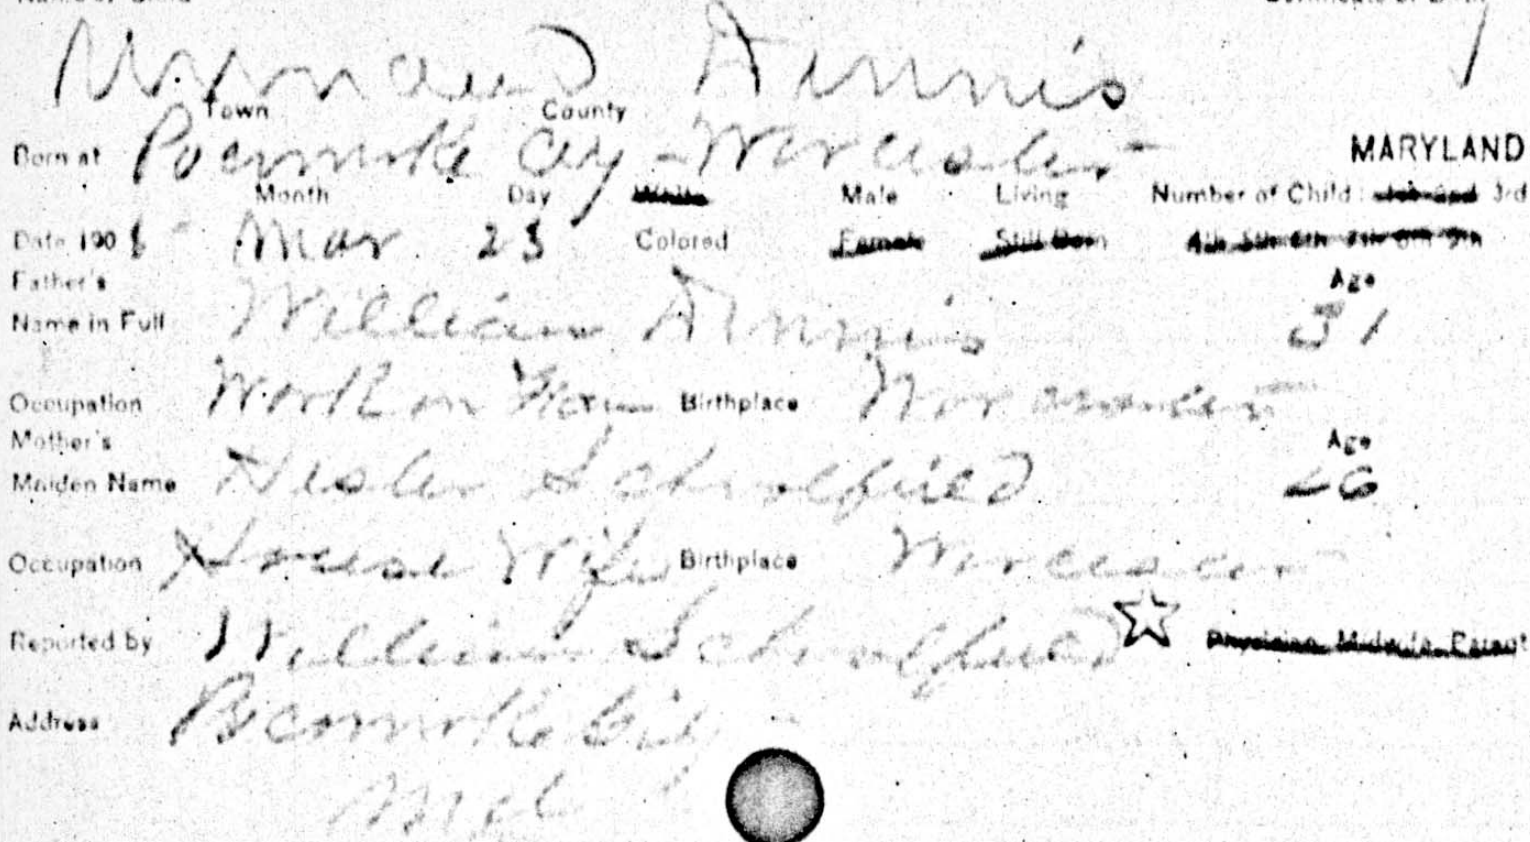 Dennis
Town County
Born at Pocomoke City Worcester MARYLAND
Month Day White Male Living Number of Child: 1st 2nd 3rd
Date 1908 Mar 23 Colored Female Still Born 4th 5th 6th 7th 8th 9th
Father's Age
Name in Full William Dennis 31
Occupation Work on Birthplace Worcester
Mother's Age
Maiden Name Hester Schoolfield 26
Occupation House Wife Birthplace Worcester
Reported by William Schoolfield Physician, Midwife, Parent
Address Pocomoke City
Md